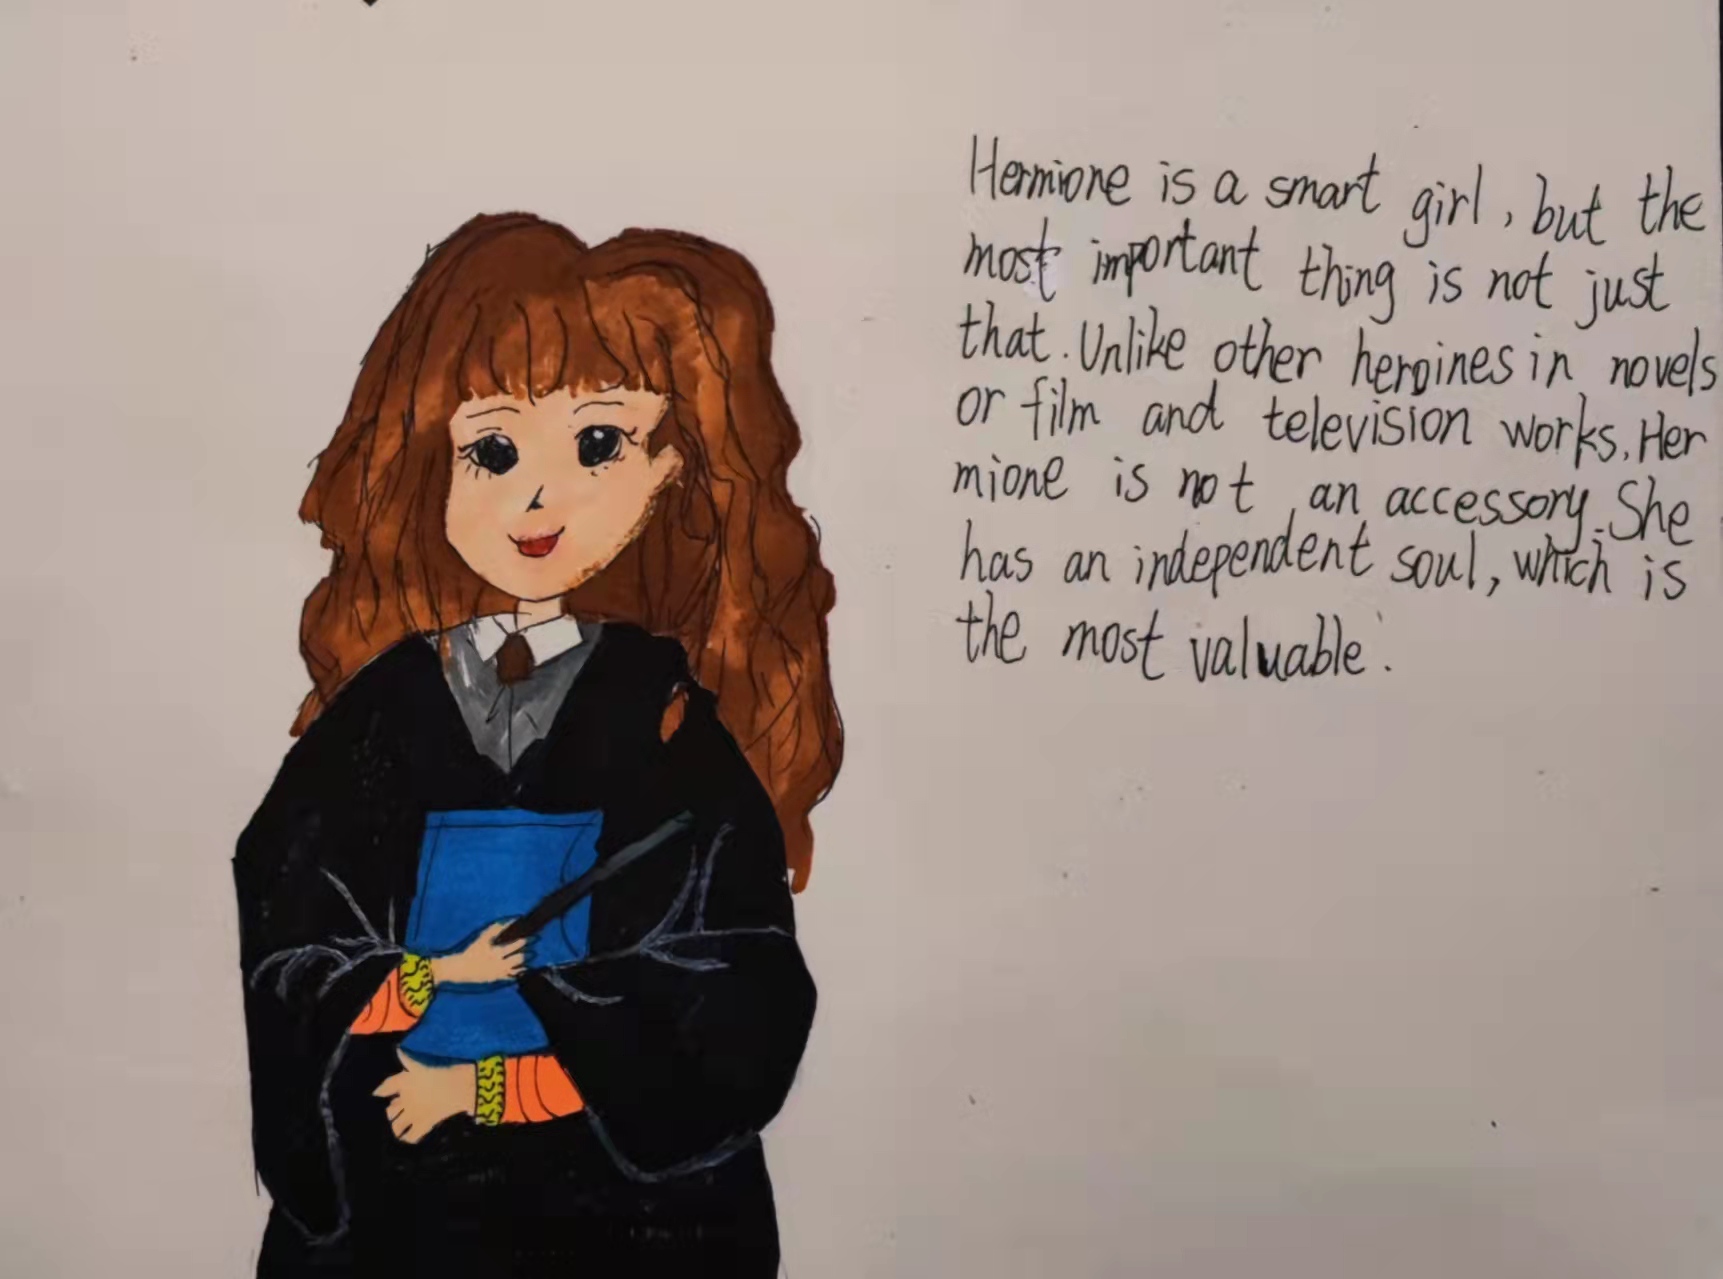 Hermione is a smart girl, but the
most important thing is not just
that. Unlike other heroines in novels
or film and television works. Her
mione is not an accessory. She
has an independent soul, which is
the most valuable.